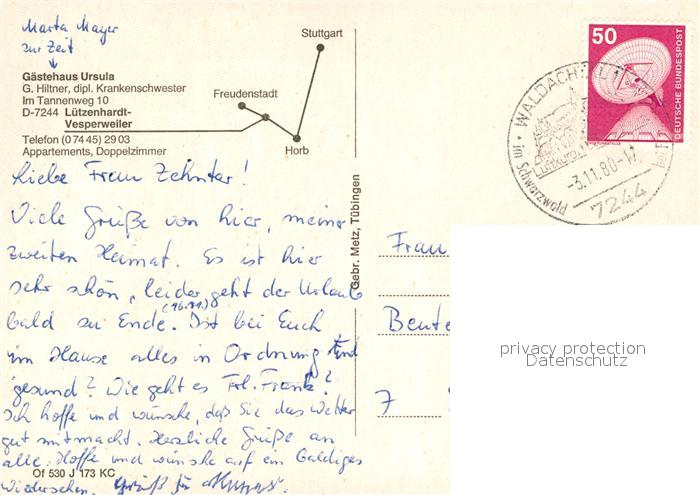 Marta Mayer
zur Zeit
Gästehaus Ursula
G. Hiltner, dipl. Krankenschwester
Im Tannenweg 10
D-7244 Lützenhardt-
Vesperweiler
Telefon (0 74 45) 29 03
Appartements, Doppelzimmer
Stuttgart
Freudenstadt
Horb
50
DEUTSCHE BUNDESPOST
WALDACHTAL 1
Luftkurort
im Schwarzwald
-3.11.80-17
7244
Liebe Frau Zehnter!
Viele Grüße von hier, meiner
zweiten Heimat. Es ist hier
sehr schön, leider geht der Urlaub
(16.11.)
bald zu Ende. Ist bei Euch
im Hause alles in Ordnung und
gesund? Wie geht es Frl. Frank?
Ich hoffe und wünsche, daß Sie das Wetter
gut mitmacht. Herzliche Grüße an
alle. Hoffe und wünsche auf ein baldiges
Wiedersehen.
Gebr. Metz, Tübingen
Frau
Beute
7
privacy protection
Datenschutz
Of 530 J 173 KC